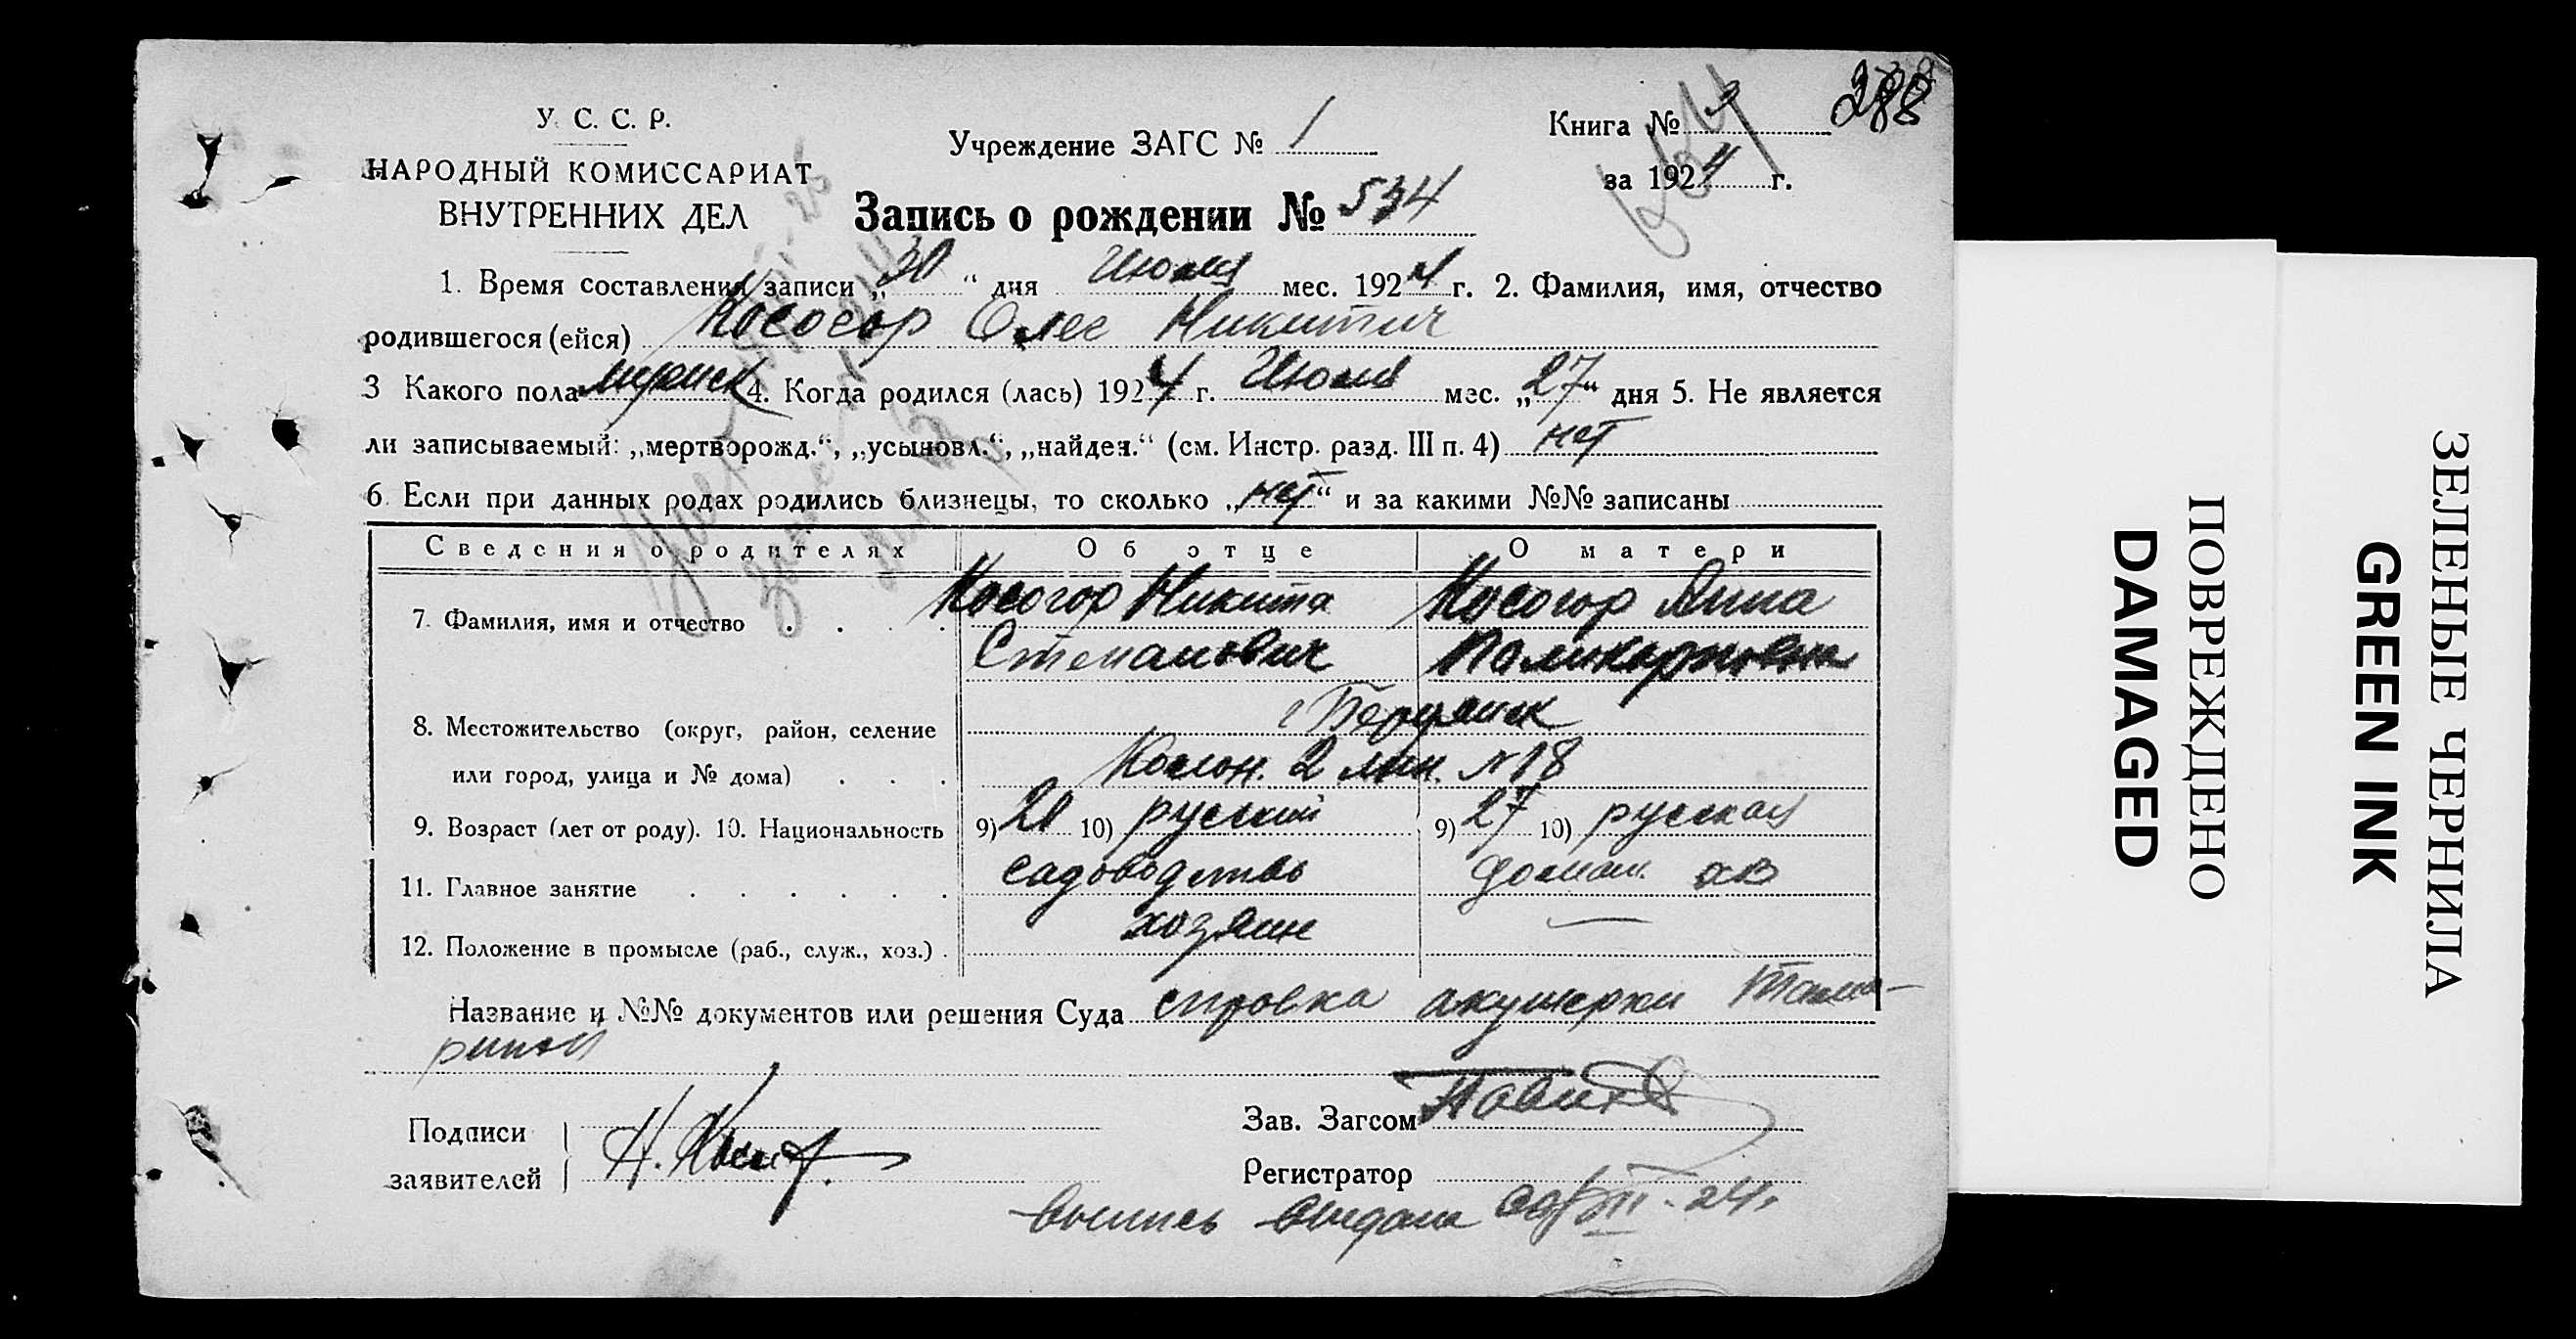 288
У. С. С. Р.
НАРОДНЫЙ КОМИССАРИАТ
ВНУТРЕННИХ ДЕЛ
Учреждение ЗАГС № 1
Книга №
за 1924 г.
Запись о рождении № 534
1. Время составления записи „30“ дня Июля мес. 1924 г. 2. Фамилия, имя, отчество
родившегося (ейся) Косогор Олес Никитич
3 Какого пола мужск 4. Когда родился (лась) 1924 г. Июля мес. „27“ дня 5. Не является
ли записываемый: „мертворожд.“, „усыновл.“, „найден.“ (см. Инстр. разд. III п. 4) нет
6. Если при данных родах родились близнецы, то сколько „нет“ и за какими №№ записаны
Сведения о родителях Об отце О матери
7. Фамилия, имя и отчество Косогор Никита Косогор Анна
Степанович Поликарповна
г Бердянск
8. Местожительство (округ, район, селение
или город, улица и № дома) Колон. 2 лин. № 18
9. Возраст (лет от роду). 10. Национальность 9) 10) русский 9) 27 10) русская
11. Главное занятие садоводство домаш.
12. Положение в промысле (раб., служ., хоз.) хозяин —
Название и №№ документов или решения Суда справка акушерки
Подписи
заявителей
Зав. Загсом
Регистратор
Выпись выдана
ПОВРЕЖДЕНО
DAMAGED
ЗЕЛЕНЫЕ ЧЕРНИЛА
GREEN INK